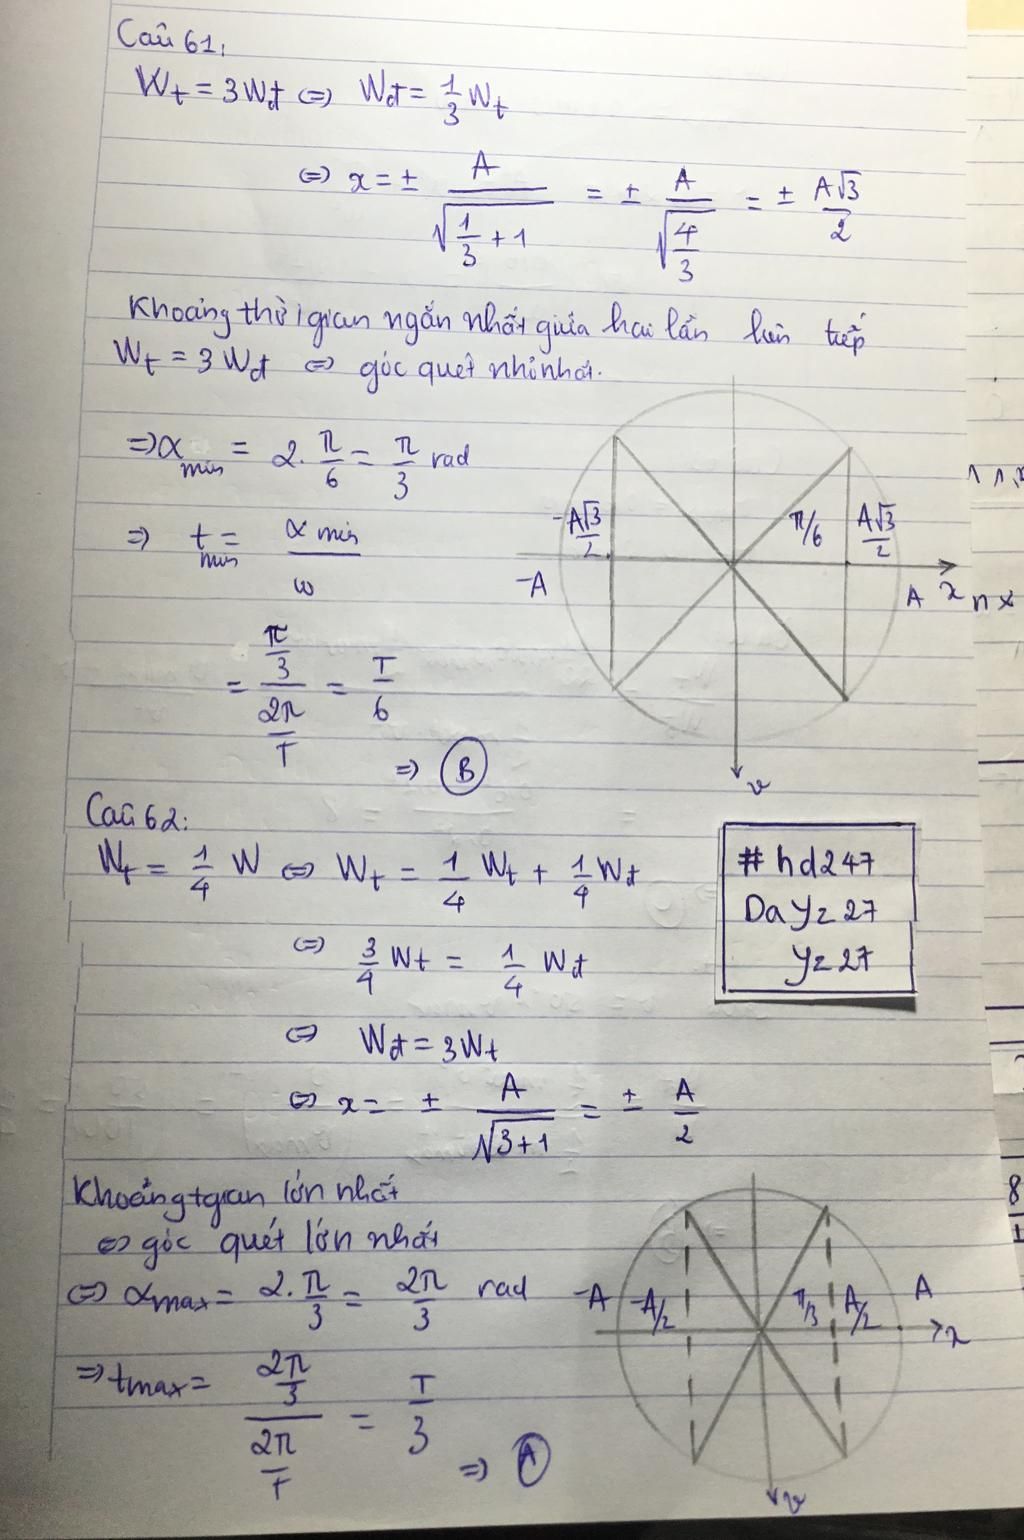 Câu 61,
Wt = 3Wđ ⇔ Wđ = 1/3 Wt
⇔ x = ± A/√(1/3 + 1) = ± A/√(4/3) = ± A√3/2
Khoảng thời gian ngắn nhất giữa hai lần liên tiếp
Wt = 3Wđ ⇔ góc quét nhỏ nhất.
⇒ α min = 2. π/6 = π/3 rad
⇒ t min = α min/ω
= (π/3)/(2π/T) = T/6
⇒ B
-A√3/2
π/6
A√3/2
-A
A
x
v
Câu 62:
Wt = 1/4 W ⇔ Wt = 1/4 Wt + 1/4 Wđ
⇔ 3/4 Wt = 1/4 Wđ
⇔ Wđ = 3Wt
⇔ x = ± A/√(3+1) = ± A/2
# hd247
Da Yz 27
Yz 27
Khoảng tgian lớn nhất
⇔ góc quét lớn nhất
⇔ αmax = 2. π/3 = 2π/3 rad
⇒ tmax = (2π/3)/(2π/T) = T/3
⇒ A
-A
-A/2
π/3
A/2
A
x
v
n x
8